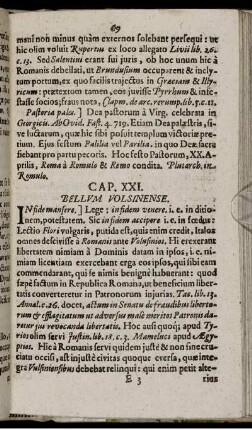 69
mani non minus quàm externos solebant persequi: ut
hic olim voluit Rupertus ex loco allegato Livii lib. 26.
c. 13. Sed Salentini erant sui juris, ob hoc unum hic à
Romanis debellati, ut Brundusium occuparent & inclytum
portum, ex quo facilis trajectus in Græciam & Illyricum:
prætextum tamen, eos juvisse Pyrrhum & infestasse
socios; fraus nota, Clapm. de arc. rerump. lib. 5. c. 12.
Pastoria palis.] Dea pastorum à Virg. celebrata in
Georgicis. Ab Ovid. Fast. 4. 729. Etiam Dea palæstris, sive
luctarum, quæ hic sibi posuit templum victoriæ pretium.
Ejus festum Palilia vel Parilia. in quo Deæ sacra
fiebant pro partu pecoris. Hoc festo Pastorum, XX. Aprilis,
Roma à Romulo & Remo condita. Plutarch. in
Romulo.
CAP. XXI.
BELLUM VOLSINENSE.
IN fide mansere,] Lege; in fidem venere. i. e. in ditionem,
potestatem. Sic in fidem accipere i. e. in fœdus:
Lectio Flori vulgaris, putida est, quis enim credit, Italos
omnes descivisse à Romanis ante Volusinios. Hi erexerant
libertatem nimiam à Dominis datam in ipsos, i. e. nimiam
licentiam exercebant erga eos ipsos, qui sibi eam
commendarant, qui se nimis benignè habuerant: quod
sæpè factum in Republica Romana, ut beneficium libertatis
converteretur in Patronorum injurias. Tac. lib. 13.
Annal. c. 26. docet, actum in Senatu de fraudibus libertorum
& efflagitatum ut adversus malè meritos Patronis daretur
jus revocanda libertatis. Hoc ausi quoq; apud Tyrios
olim servi Justin. lib. 18. c. 3. Mameluci apud Ægyptios.
Hic à Romanis servi quidem justè & non sine cruciatu
occisi, ast injustè civitas quoque eversa, quæ integra
Vulsiniensibus debebat relinqui: qui enim petit alte-
E 3 rius